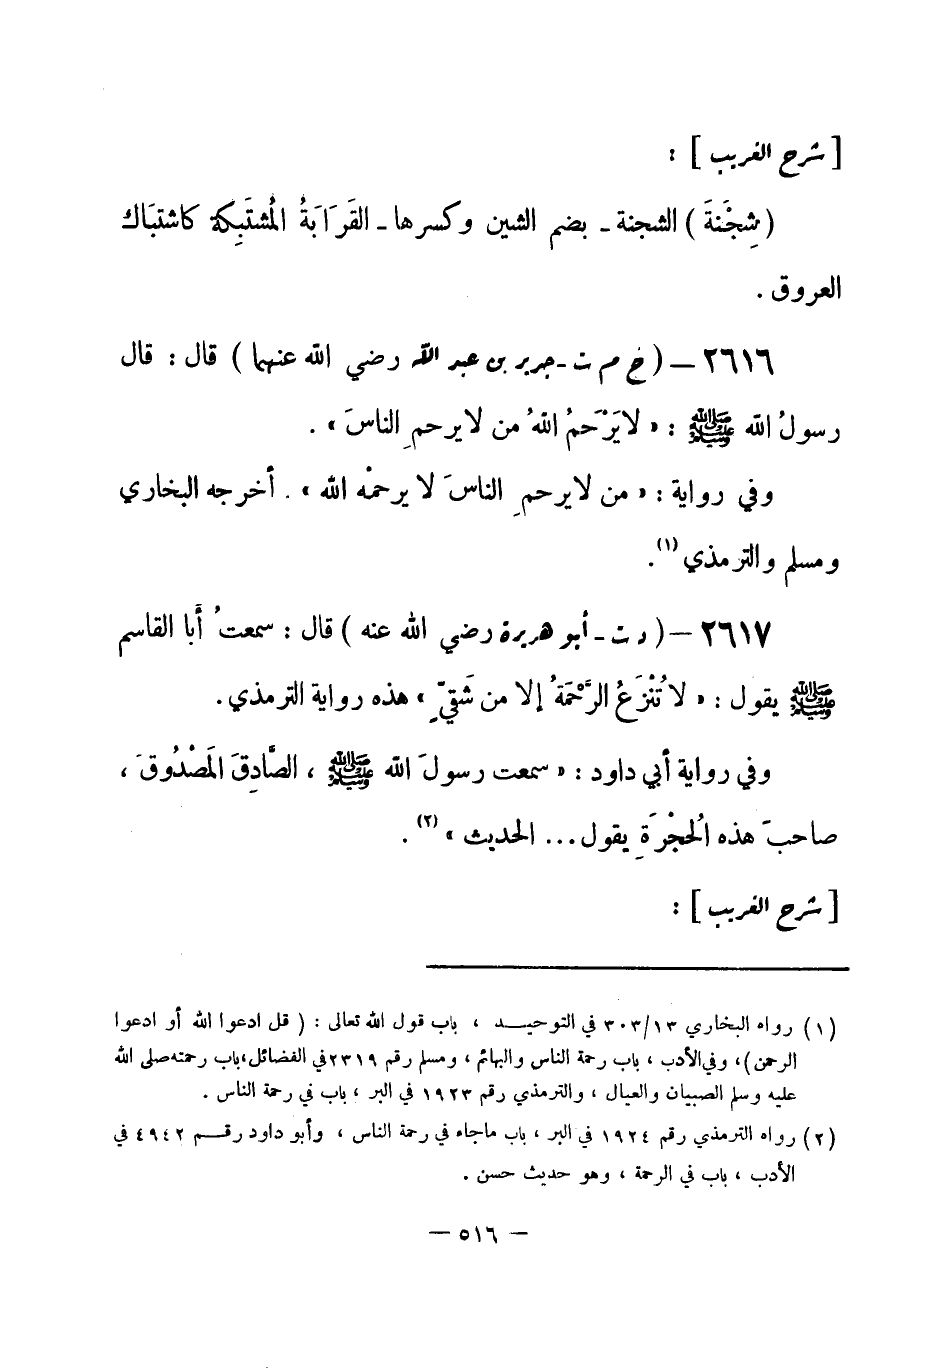 [ شرح الغريب ] :
( شِجْنَةَ ) الشجنة ـ بضم الشين وكسرها ـ القَرَابَةُ المُشتَبِكة كاشتبَاك
العروق .
٢٦١٦ – ( خ م ت ـ جرير بن عبد الله رضي الله عنهما ) قال : قال
رسولُ الله ﷺ : « لا يَرْحَمُ اللهُ من لا يرحمِ الناسَ » .
وفي رواية : « من لا يرحمِ الناسَ لا يرحمْه الله » . أخرجه البخاري
ومسلم والترمذي (١).
٢٦١٧ – ( د ت ـ أبو هريرة رضي الله عنه ) قال : سمعتُ أبا القاسم
ﷺ يقول : « لا تُنْزَعُ الرَّحْمَةُ إلا من شَقيٍّ » هذه رواية الترمذي .
وفي رواية أبي داود : « سمعت رسولَ الله ﷺ ، الصَّادِقَ المَصْدُوقَ ،
صاحبَ هذه الحُجْرَةِ يقول ... الحديث » (٢) .
[ شرح الغريب ] :
(١) رواه البخاري ٣٠٣/١٣ في التوحيد ، باب قول الله تعالى : ( قل ادعوا الله أو ادعوا
الرحمن ) ، وفي الأدب ، باب رحمة الناس والبهائم ، ومسلم رقم ٢٣١٩ في الفضائل ، باب رحمته صلى الله
عليه وسلم الصبيان والعيال ، والترمذي رقم ١٩٢٣ في البر ، باب في رحمة الناس .
(٢) رواه الترمذي رقم ١٩٢٤ في البر ، باب ماجاء في رحمة الناس ، وأبو داود رقم ٤٩٤٢ في
الأدب ، باب في الرحمة ، وهو حديث حسن .
– ٥١٦ –